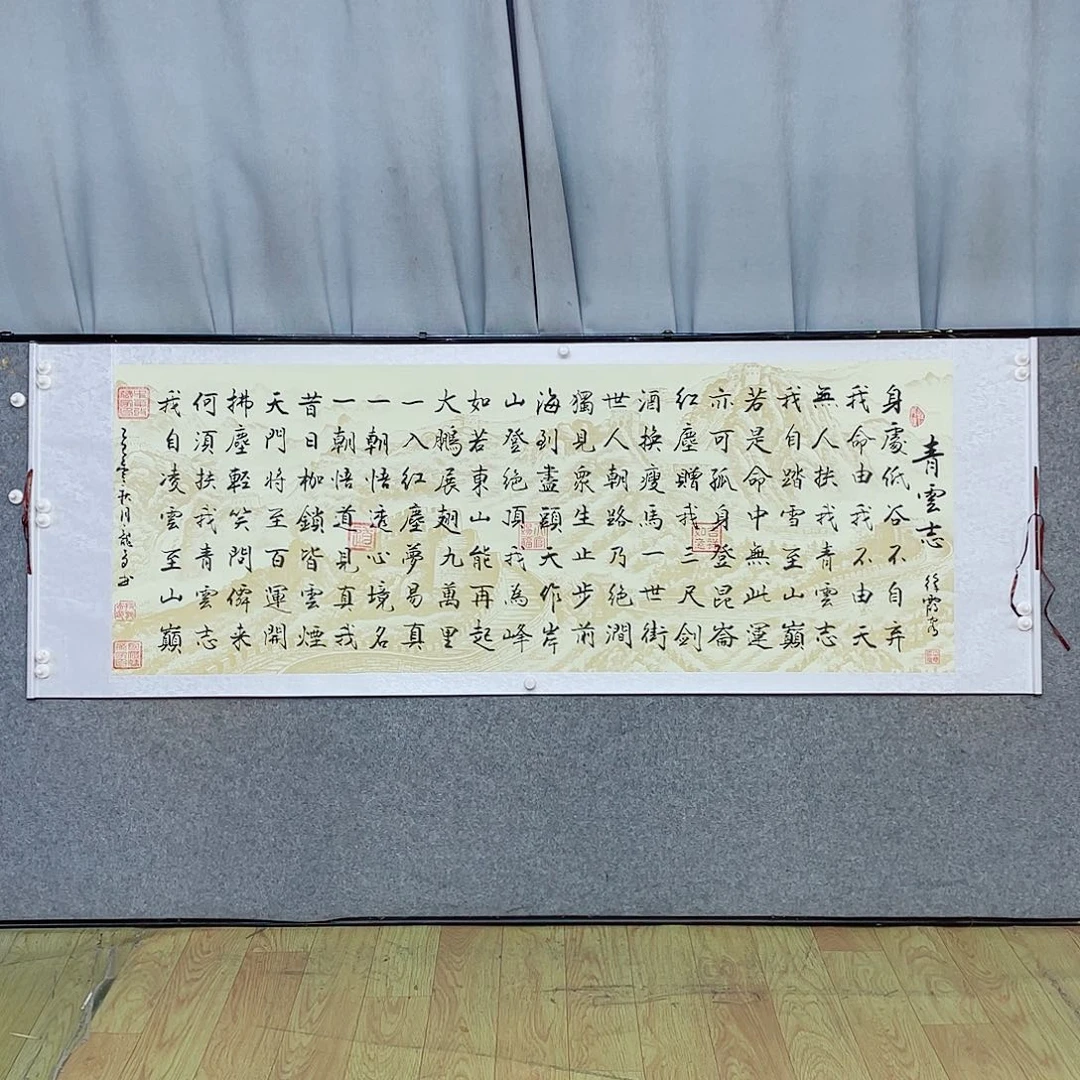 青雲志
徐霞客
身處低谷不自弃
我命由我不由天
無人扶我青雲志
我自踏雪至山巔
若是命中無此運
亦可孤身登昆崙
红塵贈我二尺劍
酒换瘦馬一世街
世人朝路乃绝澗
獨見衆生止步前
海到盡頭天作岸
山登绝頂我為峰
如若東山能再起
大鵬展翅九萬里
一入红塵夢易真
一朝悟透心境名
一朝悟道見真我
昔日枷鎖皆雲煙
天門將至百運開
拂塵輕笑問儕来
何須扶我青雲志
我自凌雲至山巔